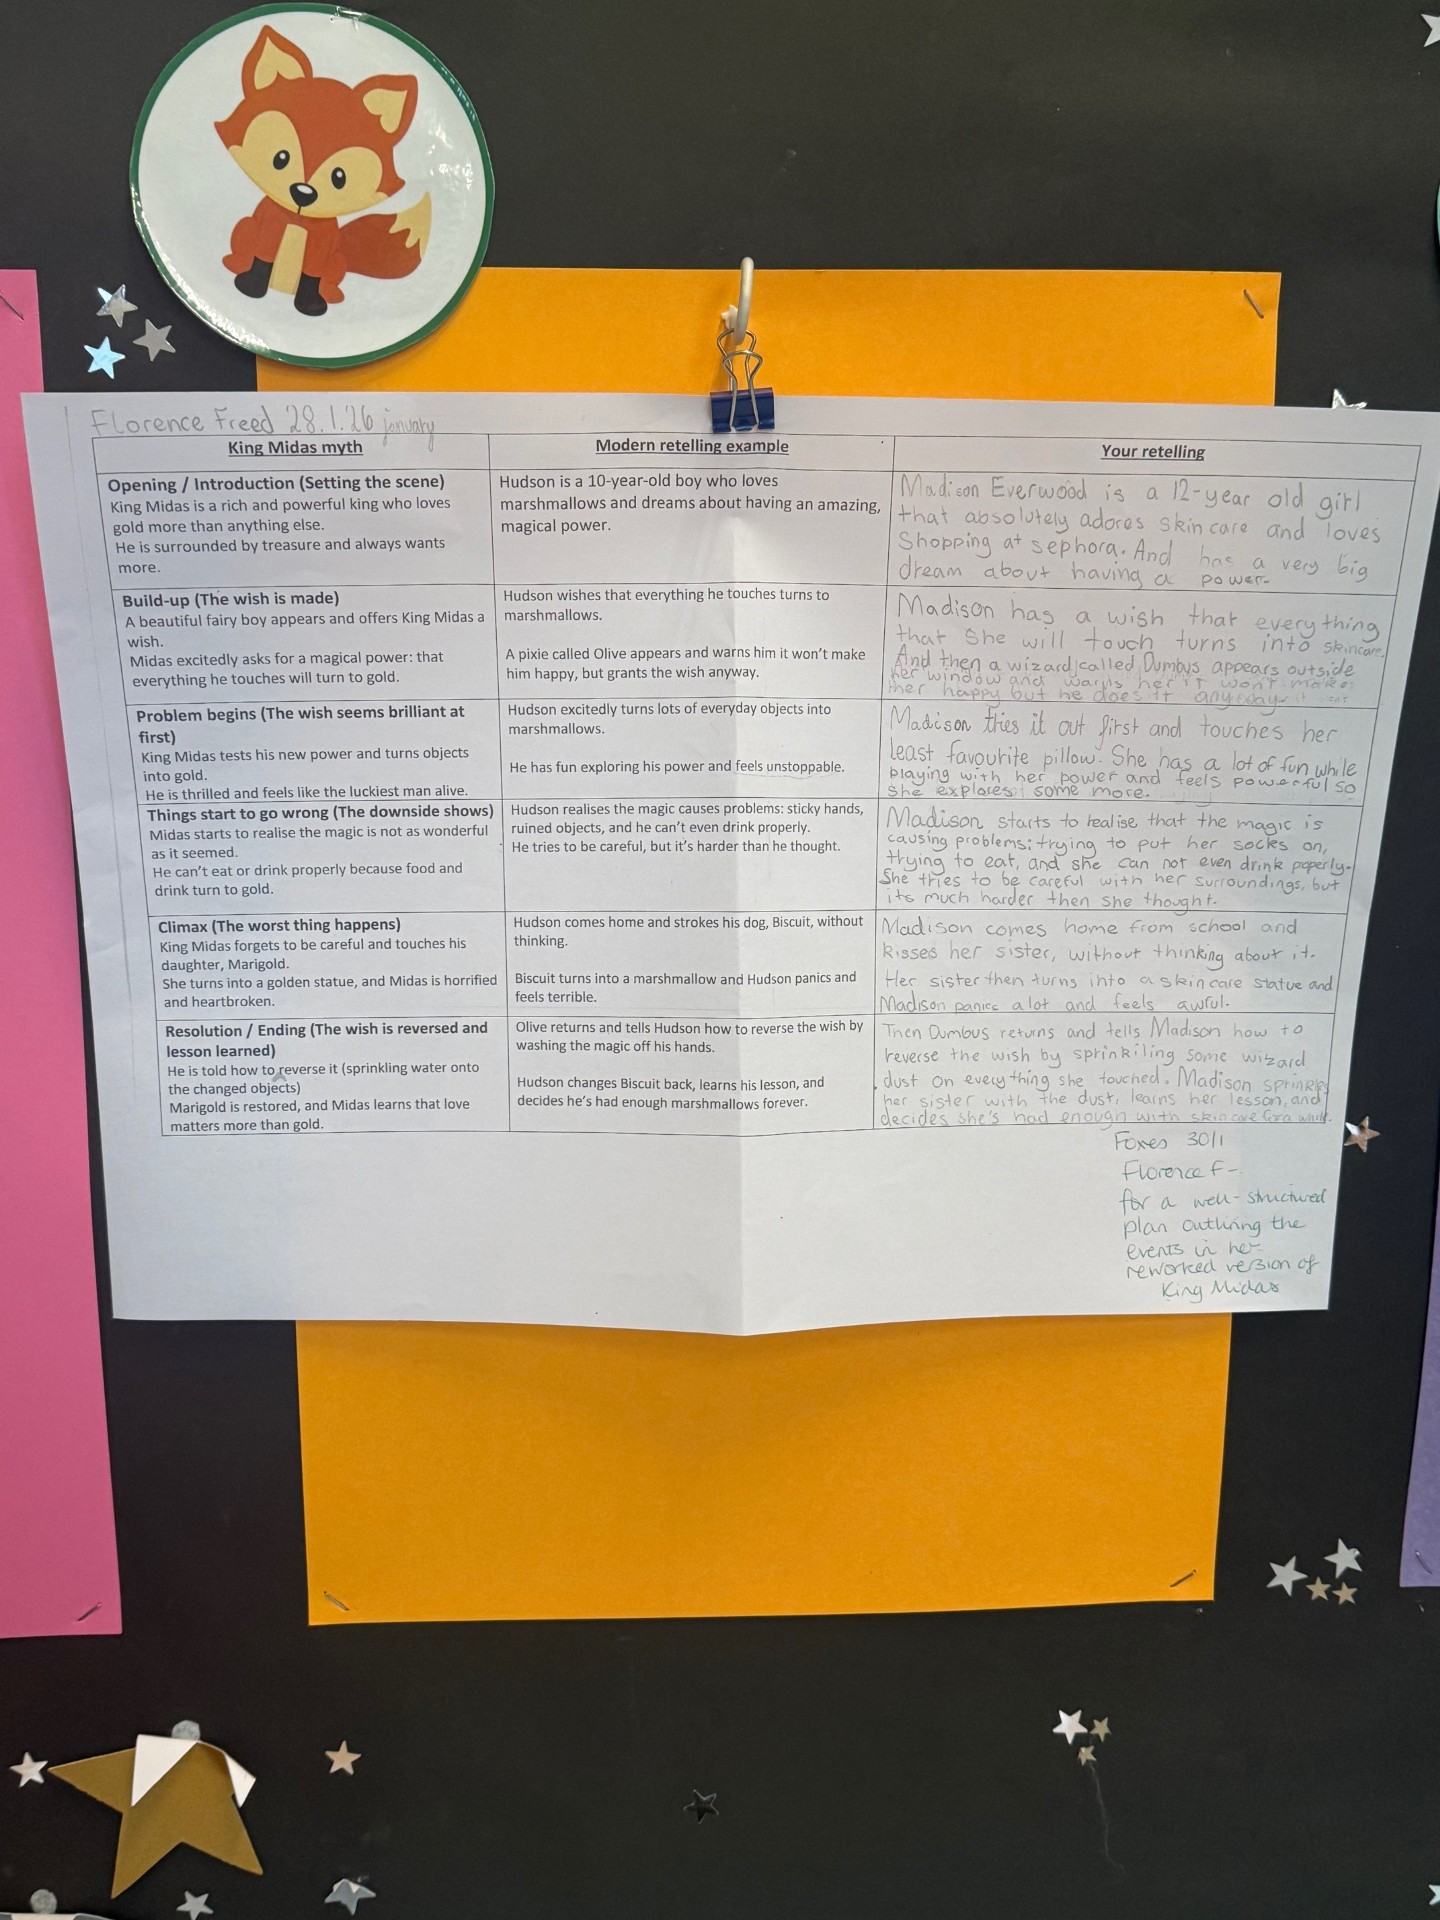 Florence Freed 28.1.26 january
King Midas myth
Modern retelling example
Your retelling
Opening / Introduction (Setting the scene)
King Midas is a rich and powerful king who loves
gold more than anything else.
He is surrounded by treasure and always wants
more.
Hudson is a 10-year-old boy who loves
marshmallows and dreams about having an amazing,
magical power.
Madison Everwood is a 12-year old girl
that absolutely adores skin care and loves
Shopping at sephora. And has a very big
dream about having a power.
Build-up (The wish is made)
A beautiful fairy boy appears and offers King Midas a
wish.
Midas excitedly asks for a magical power: that
everything he touches will turn to gold.
Hudson wishes that everything he touches turns to
marshmallows.
A pixie called Olive appears and warns him it won't make
him happy, but grants the wish anyway.
Madison has a wish that everything
that she will touch turns into skincare.
And then a wizard called Dumbus appears outside
her window and warns her it won't make
her happy but he does it anyway.
Problem begins (The wish seems brilliant at
first)
King Midas tests his new power and turns objects
into gold.
He is thrilled and feels like the luckiest man alive.
Hudson excitedly turns lots of everyday objects into
marshmallows.
He has fun exploring his power and feels unstoppable.
Madison tries it out first and touches her
least favourite pillow. She has a lot of fun while
playing with her power and feels powerful so
she explores some more.
Things start to go wrong (The downside shows)
Midas starts to realise the magic is not as wonderful
as it seemed.
He can't eat or drink properly because food and
drink turn to gold.
Hudson realises the magic causes problems: sticky hands,
ruined objects, and he can't even drink properly.
He tries to be careful, but it's harder than he thought.
Madison starts to realise that the magic is
causing problems: trying to put her socks on,
trying to eat, and she can not even drink properly.
She tries to be careful with her surroundings, but
its much harder then she thought.
Climax (The worst thing happens)
King Midas forgets to be careful and touches his
daughter, Marigold.
She turns into a golden statue, and Midas is horrified
and heartbroken.
Hudson comes home and strokes his dog, Biscuit, without
thinking.
Biscuit turns into a marshmallow and Hudson panics and
feels terrible.
Madison comes home from school and
kisses her sister, without thinking about it.
Her sister then turns into a skin care statue and
Madison panics a lot and feels awful.
Resolution / Ending (The wish is reversed and
lesson learned)
He is told how to reverse it (sprinkling water onto
the changed objects)
Marigold is restored, and Midas learns that love
matters more than gold.
Olive returns and tells Hudson how to reverse the wish by
washing the magic off his hands.
Hudson changes Biscuit back, learns his lesson, and
decides he's had enough marshmallows forever.
Then Dumbus returns and tells Madison how to
reverse the wish by sprinkiling some wizard
dust on everything she touched. Madison sprinkles
her sister with the dust, learns her lesson, and
decides she's had enough with skin care for a while.
Foxes 30/1
Florence F-
for a well-structured
plan outlining the
events in her
reworked version of
King Midas